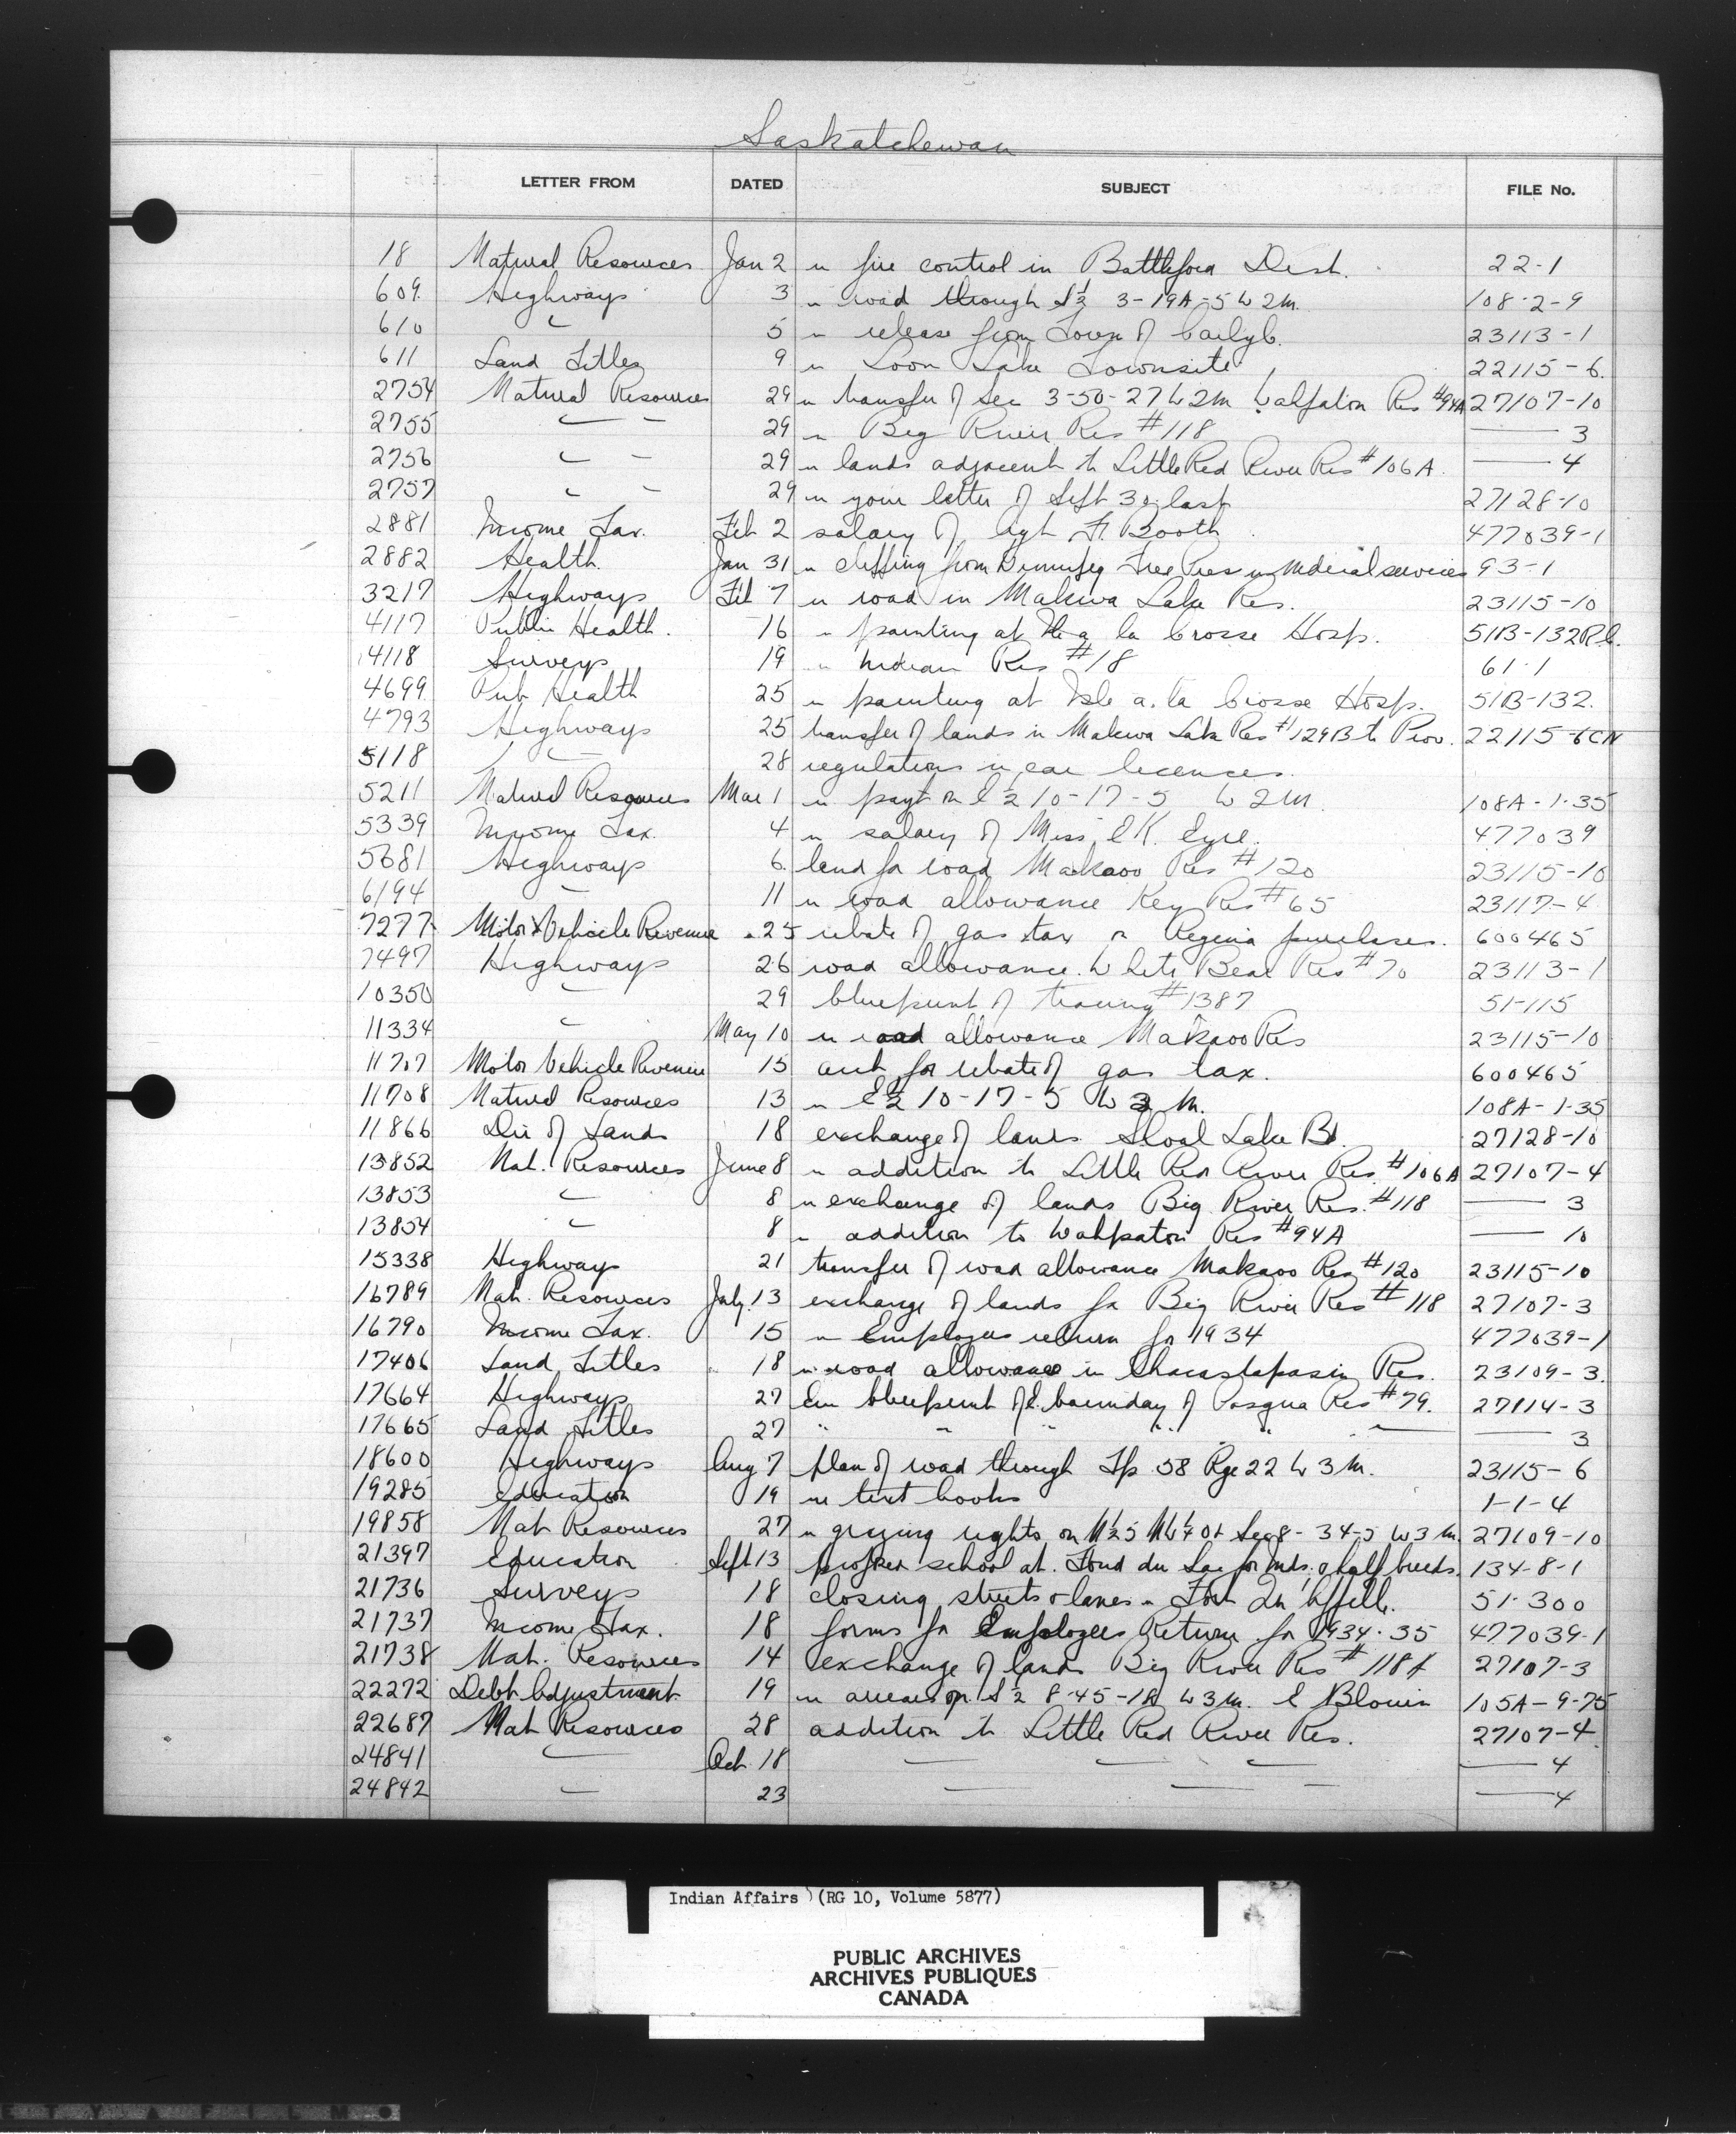 Saskatchewan
LETTER FROM DATED SUBJECT FILE No.
18 Natural Resources Jan 2 re fire control in Battleford Dist. 22-1
609 Highways 3 re road through S½ 3-19A-5 W2M. 108-2-9
610 " 5 re release from Town of 23113-1
611 Land Titles 9 re Loon Lake Townsite 22115-6.
2754 Natural Resources 29 re transfer of Sec 3-50-27 W2M Wahpaton Res #94A 27107-10
2755 — — 29 re Big River Res #118 — 3
2756 — — 29 re lands adjacent to Little Red River Res #106A. — 4
2757 — — 29 re your letter of Sept 30 last 27128-10
2881 Income Tax. Feb 2 salary of Agt Booth 477039-1
2882 Health. Jan 31 re clipping from Winnipeg Free Press re medical services 93-1
3217 Highways Feb 7 re road in Makwa Lake Res. 23115-10
4117 Public Health. 16 re painting at Ile a la Crosse Hosp. 51B-132R.C.
4118 Surveys 19 re Indian Res #18 61-1
4699 Pub Health 25 re painting at Isle a la Crosse Hosp. 51B-132.
4793 Highways 25 transfer of lands in Makwa Lake Res #129B to Prov. 22115-6CN
5118 — 28 regulations re car licences.
5211 Natural Resources Mar 1 re payt on E½ 10-17-5 W2M. 108A-1-35
5339 Income Tax. 4 re salary of Miss E K. Eyre. 477039
5681 Highways 6 land for road Makaoo Res #120 23115-10
6194 — 11 re road allowance Key Res #65 23117-4
7277 Motor Vehicle Revenue 25 rebate of gas tax on Regina purchases. 600465
7497 Highways 26 road allowance. White Bear Res #70 23113-1
10350 — 29 blueprint of tracing #1387 51-115
11334 — May 10 re road allowance Makaoo Res 23115-10
11707 Motor Vehicle Revenue 15 acct for rebate of gas tax. 600465
11708 Natural Resources 13 re E½ 10-17-5 W2M. 108A-1-35
11866 Dir of Lands 18 exchange of lands Shoal Lake Bd. 27128-10
13852 Nat. Resources June 8 re addition to Little Red River Res. #106A 27107-4
13853 — 8 re exchange of lands Big River Res. #118 — 3
13854 — 8 re addition to Wahpaton Res #94A — 10
15338 Highways 21 transfer of road allowance Makaoo Res #120 23115-10
16789 Nat. Resources July 13 exchange of lands for Big River Res #118 27107-3
16790 Income Tax. 15 re Employees return for 1934 477039-1
17406 Land Titles 18 re road allowance in Chacastapasin Res. 23109-3.
17664 Highways 27 blueprint of E. boundary of Pasqua Res #79. 27114-3
17665 Land Titles 27 " " " " " — — 3
18600 Highways Aug 7 plan of road through Tp 58 Rge 22 W3M. 23115-6
19285 Education 19 re text books 1-1-4
19858 Nat Resources 27 re grazing rights on N½5 NW¼ Or Sec 8-34-5 W3M. 27109-10
21397 Education Sept 13 proposed school at Fond du Lac for Inds. & half breeds. 134-8-1
21736 Surveys 18 closing streets & lanes in Fort Qu Appelle. 51-300
21737 Income Tax. 18 forms for Employees Return for 1934-35 477039-1
21738 Nat. Resources 14 exchange of lands Big River Res #118A 27107-3
22272 Debt Adjustment 19 re arrears on S½ 8-45-1A W3M. E Blouin 105A-9-75
22687 Nat Resources 28 addition to Little Red River Res. 27107-4
24841 — Oct. 18 — — — — 4
24842 — 23 — — — — 4
Indian Affairs (RG 10, Volume 5877)
PUBLIC ARCHIVES
ARCHIVES PUBLIQUES
CANADA